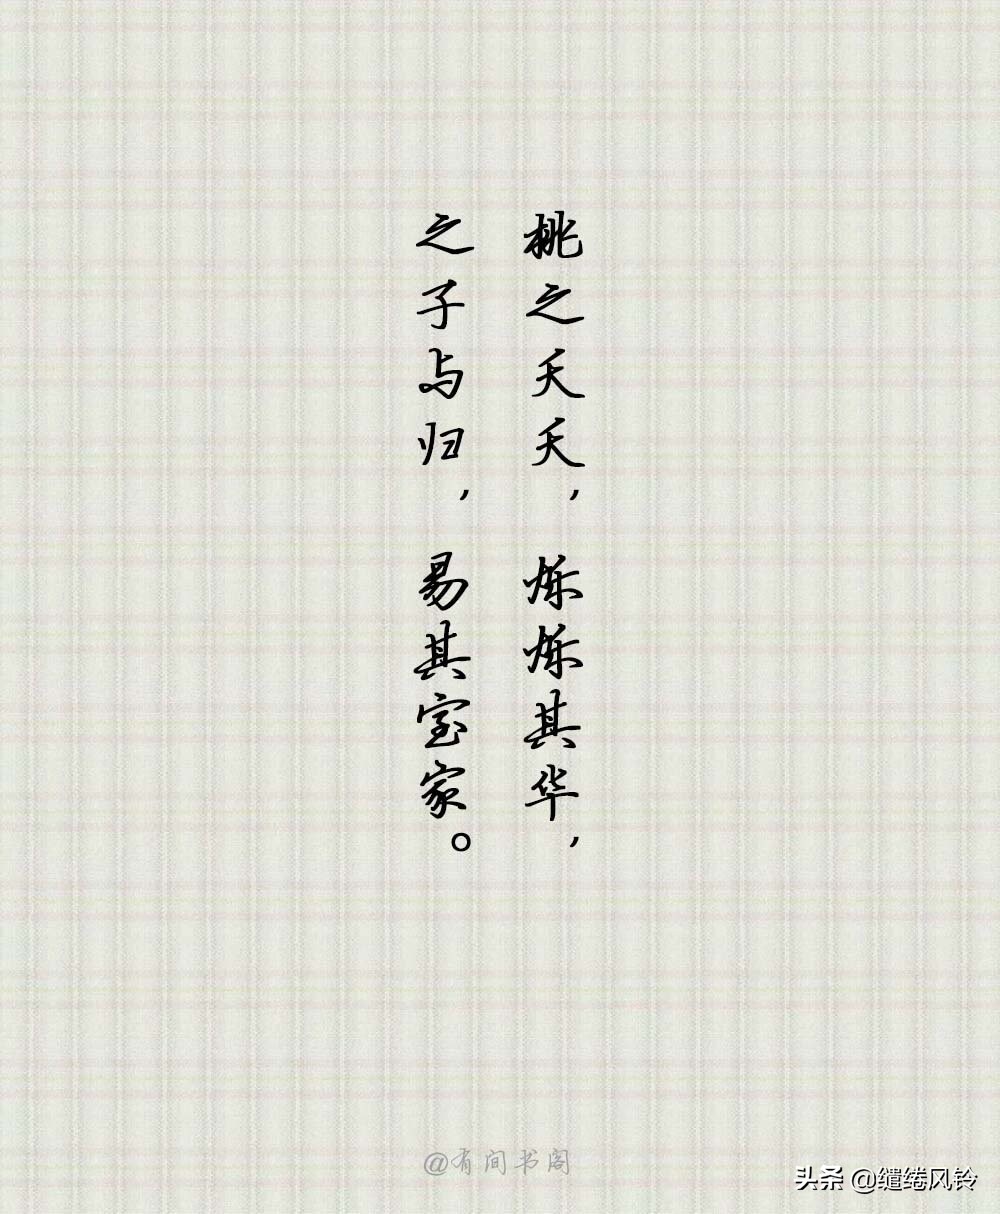 桃之夭夭，烁烁其华，
之子与归，易其室家。
@有间书阁
头条 @缱绻风铃